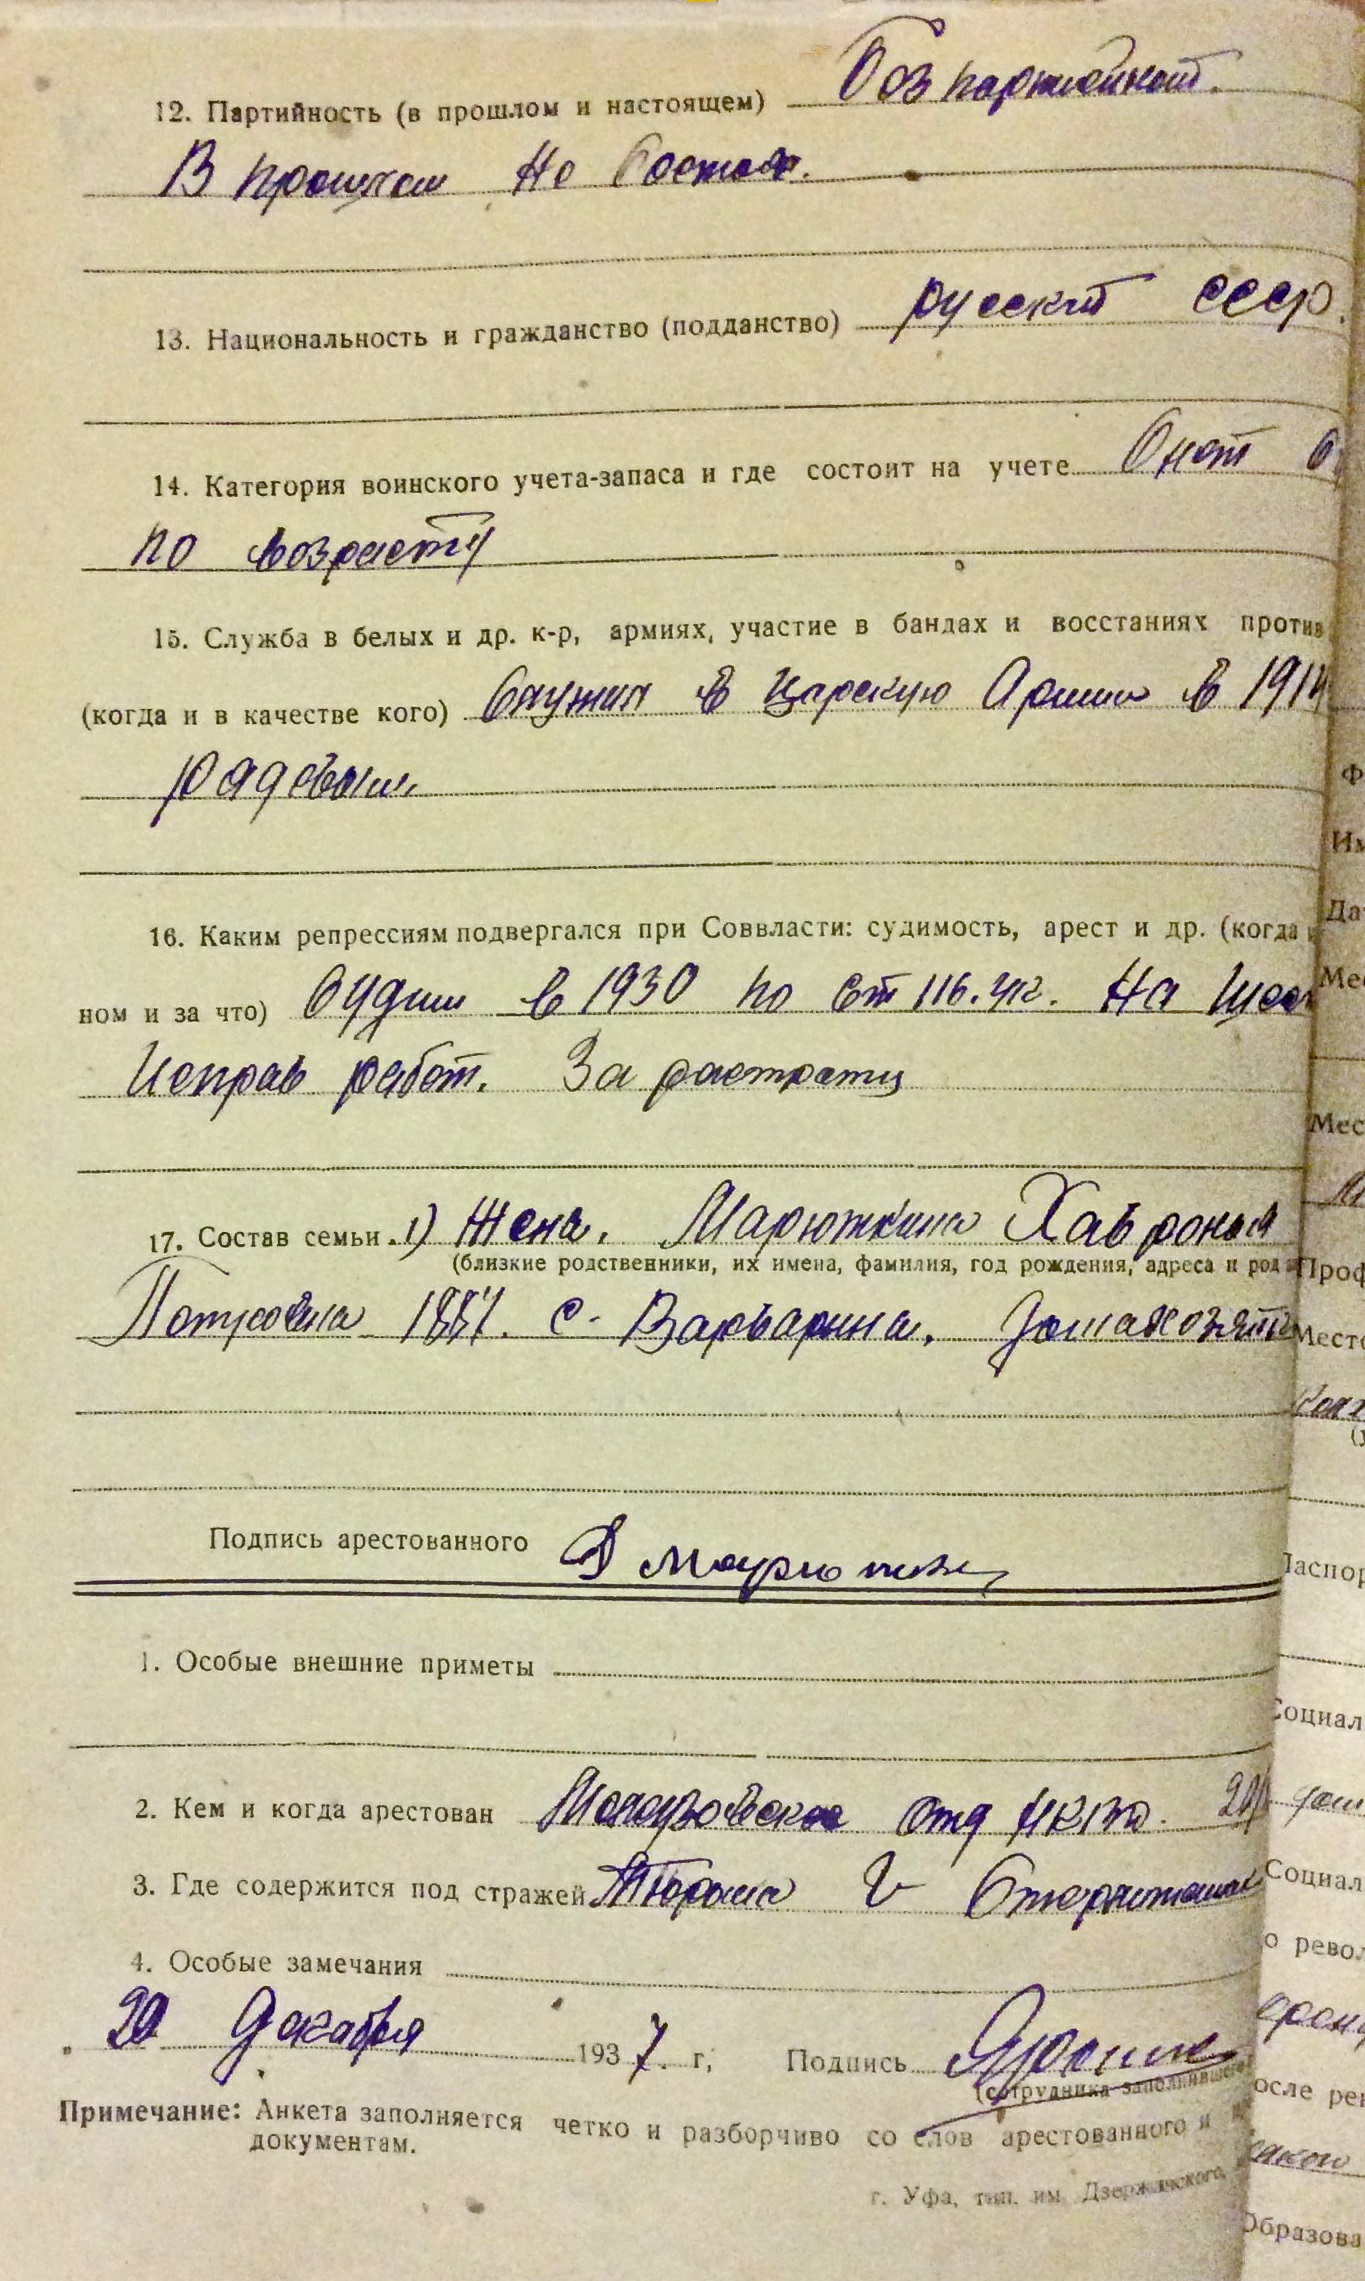 12. Партийность (в прошлом и настоящем) Безпартийной.
В прошлом не состоял.
13. Национальность и гражданство (подданство) русский СССР.
14. Категория воинского учета-запаса и где состоит на учете Снят с
по возрасту
15. Служба в белых и др. к-р, армиях, участие в бандах и восстаниях против
(когда и в качестве кого) Служил в царскую Армию в 1914
рядовым.
16. Каким репрессиям подвергался при Соввласти: судимость, арест и др. (когда
ном и за что) Судим в 1930 по ст 116. ук. на
Исправ работ. За растрату
17. Состав семьи. 1) Жена. Марюткина Хавронья
(близкие родственники, их имена, фамилия, год рождения, адреса и род
1887. с. Варварина. домахозяй
Подпись арестованного
1. Особые внешние приметы
2. Кем и когда арестован отд НКВД.
3. Где содержится под стражей Тюрьма г Стерлитамак
4. Особые замечания
20 Декабря 1937 г, Подпись
(сотрудника заполнившего
Примечание: Анкета заполняется четко и разборчиво со слов арестованного и
документам.
г. Уфа, тип. им. Дзержинского,
Ф
Им
Да
Мес
Мес
Проф
Место
Паспор
Социал
Социал
о револ
осле рев
Образова